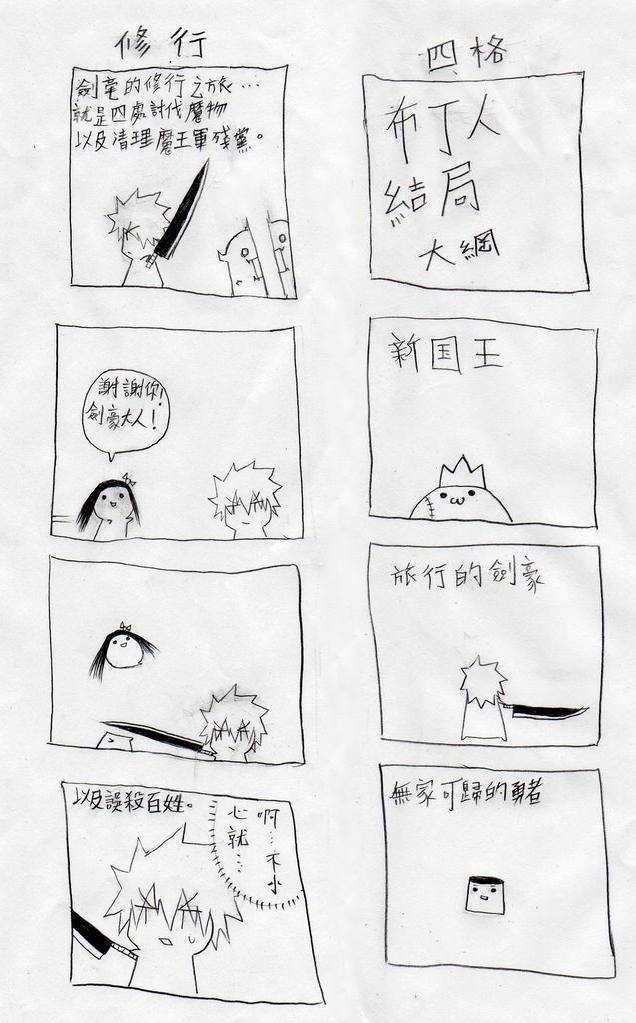 修行
劍毫的修行之旅…
就是四處討伐魔物
以及清理魔王軍殘黨。
謝謝你!
劍豪大人!
以及誤殺百姓。
啊…不小
心就…
四格
布丁人
結局
大綱
新国王
旅行的劍豪
無家可歸的勇者